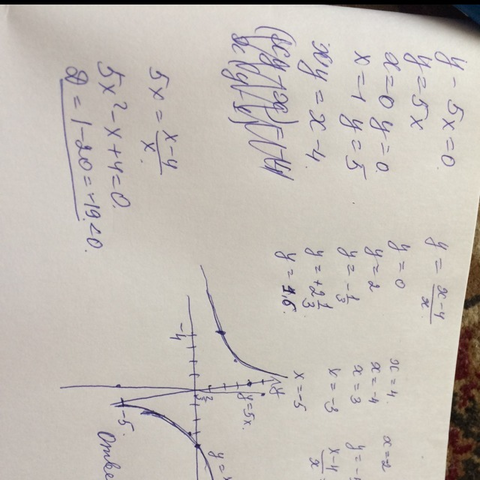 y - 5x = 0.
y = 5x
x = 0 y = 0
x = 1 y = 5
xy = x - 4.
5x = \frac{x-4}{x}.
5x² - x + 4 = 0.
D = 1 - 20 = -19 < 0.
y = \frac{x-4}{x}
y = 0 x = 4.
y = 2 x = -4
y = -\frac{1}{3} x = 3
y = +2\frac{1}{3} x = -3
y = 1,6. x = -5
x = 2
y = -1
\frac{x-4}{x} =
-4
y
y = 5x.
-5